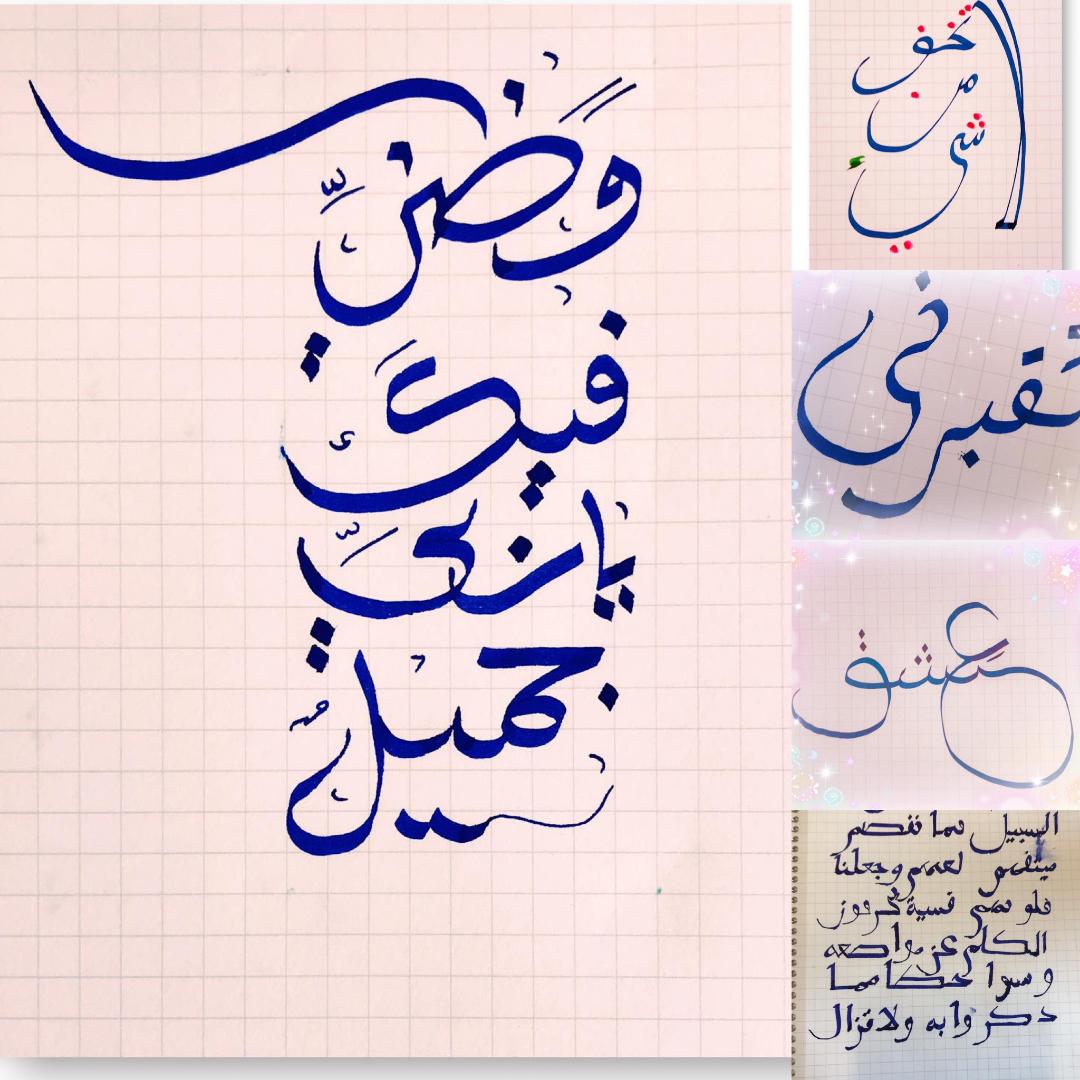 وَضنِّي
فيك
يا سندي
جميلُ
لا تخف
من
شئ
تقبرني
عشق
السبيل فبما نقضهم
ميثقهم لعنهم وجعلنا
قلوبهم قسية يحرفون
الكلم عن مواضعه
ونسوا حظا مما
ذكروا به ولا تزال